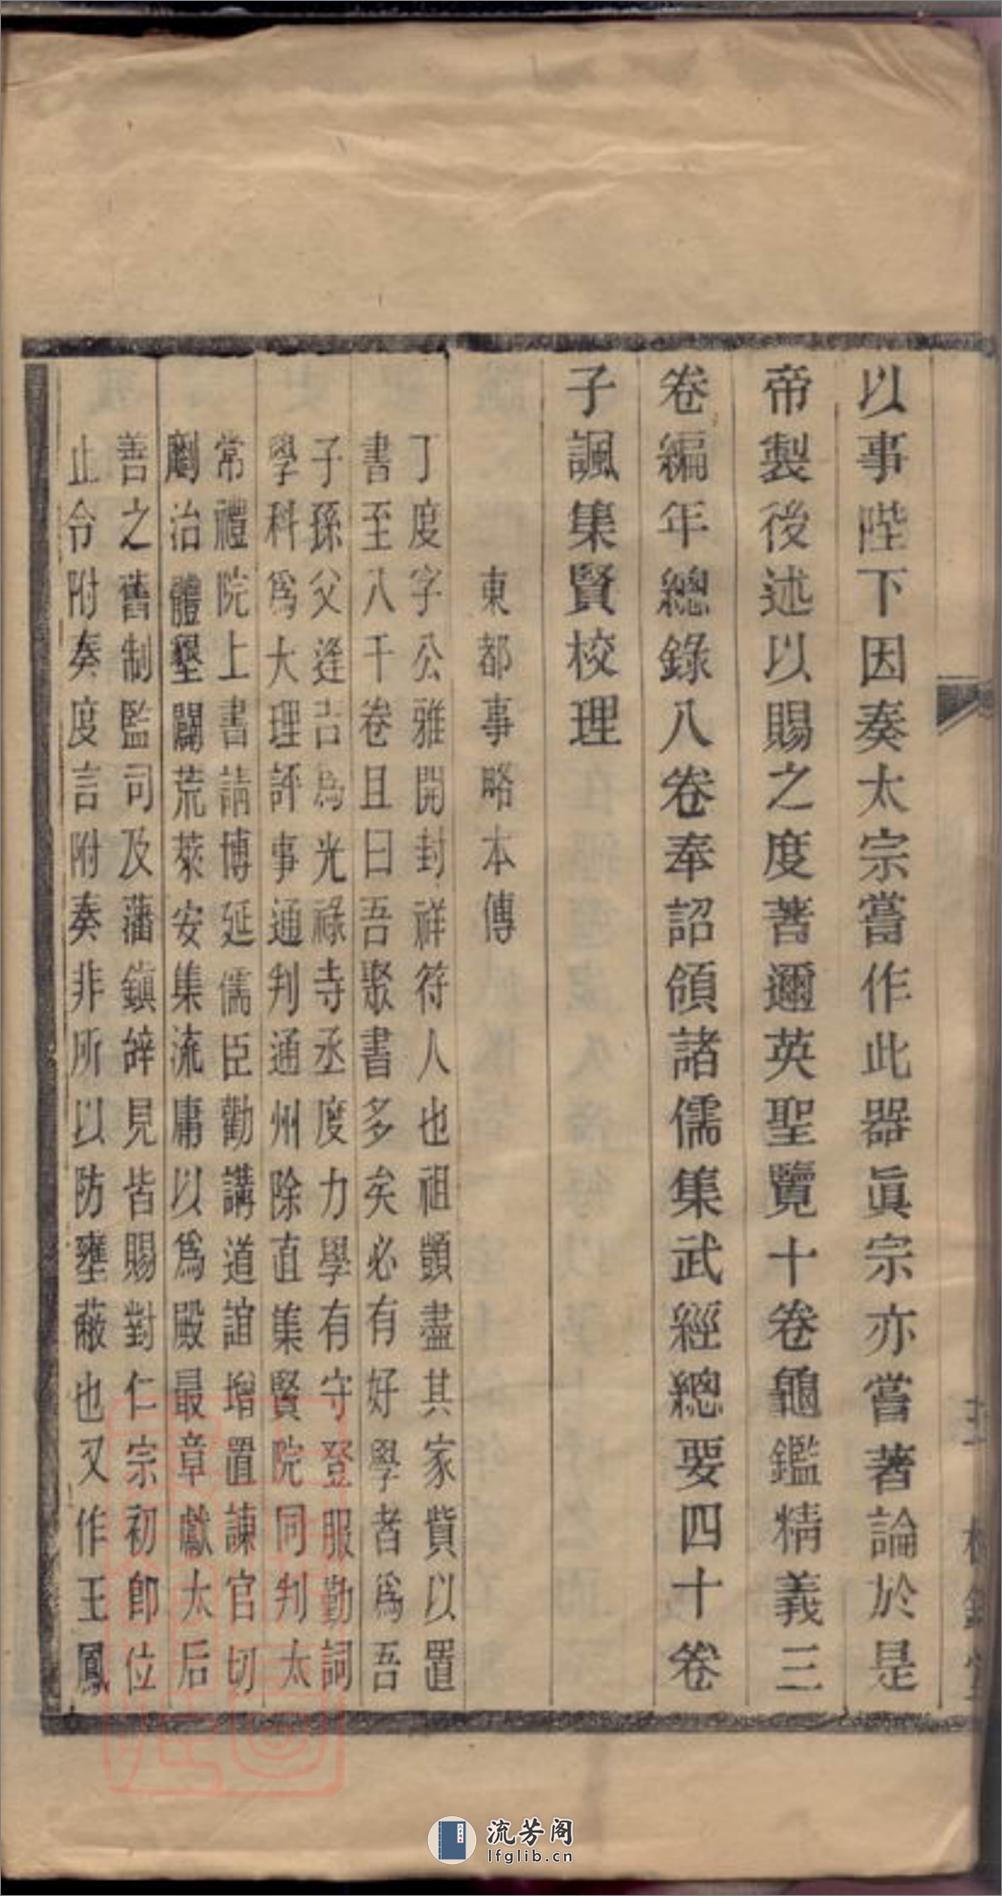 以事陛下因奏太宗嘗作此器眞宗亦嘗著論於是
帝製後述以賜之度著邇英聖覽十卷龜鑑精義三
卷編年總錄八卷奉詔領諸儒集武經總要四十卷
子諷集賢校理
東都事略本傳
丁度字公雅開封祥符人也祖顗盡其家貲以置
書至八千卷且曰吾聚書多矣必有好學者爲吾
子孫父逢吉爲光祿寺丞度力學有守登服勤詞
學科爲大理評事通判通州除直集賢院同判太
常禮院上書請博延儒臣勸講道誼增置諫官切
劘治體墾闢荒萊安集流庸以爲殿最章獻太后
善之舊制監司及藩鎭辭見皆賜對仁宗初卽位
止令附奏度言附奏非所以防壅蔽也又作王鳳
流芳阁
lfglib.cn